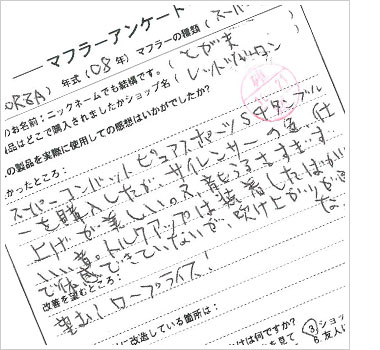 マフラーアンケート
年式（'08年）マフラーの種類（スーパー
のお名前：ニックネームでも結構です。（とがま
品はどこで購入されましたかショップ名（レッドバロン
の製品を実際に使用しての感想はいかがでしたか？
かったところ：
スーパーコンバットピュアスポーツS タンブル
ーを購入したが、サイレンサーの造（仕
上げ）が美しい。又、静うるさすぎず
いい音。トルクアップは装着したばかり
で体感できていないが、吹け上がりが
改善を望むところ：
望む！ロープライス！
に改造している箇所は：
けは何ですか？
③ショッ
6. 友人に